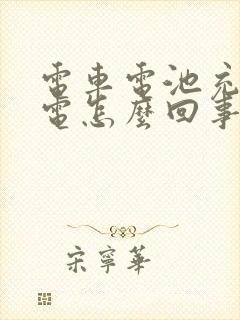 電車電池充
電怎麼回事
宋寧華